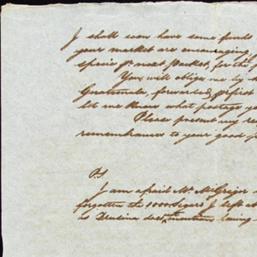 I shall soon have some funds
your market are encouraging,
specie pr. next packet, for the
You will oblige me by
Guatemala, forwarded
let me know what postage
Please present my
remembrance to your good
PS
I am afraid Mr. McGregor
forgotten the 1000 segars I left
as